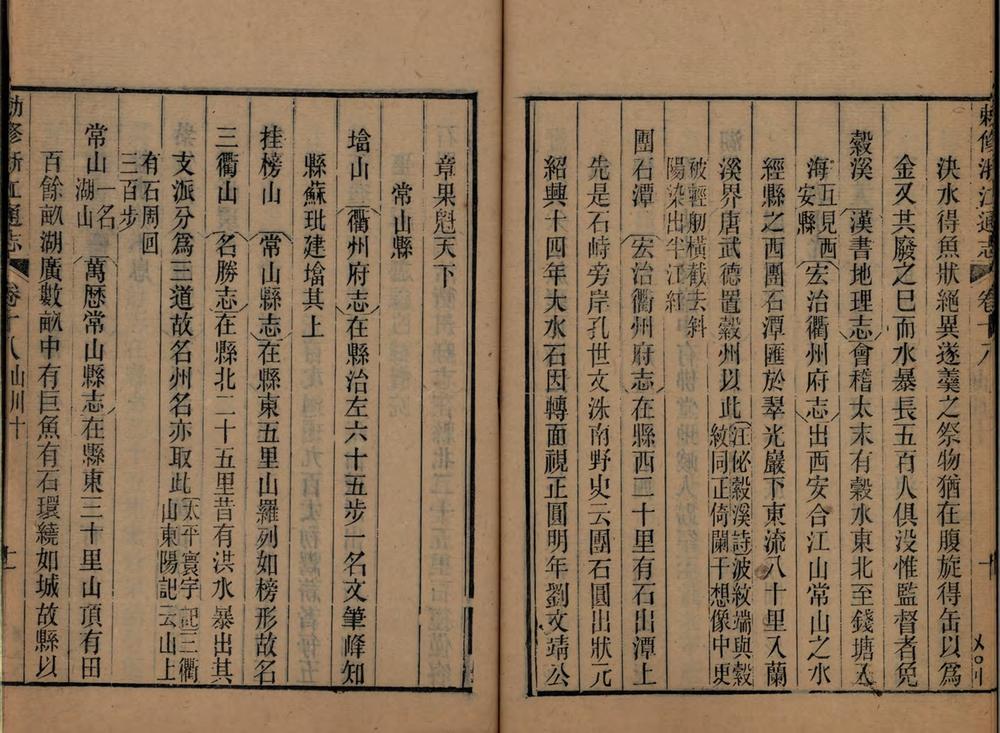 敕修浙江通志 卷十八
決水得魚狀絕異遂羹之祭物猶在腹旋得缶以爲
金又共廢之巳而水暴長五百人俱没惟監督者免
縠溪 漢書地理志會稽太末有縠水東北至錢塘入
海 互見西安縣 宏治衢州府志出西安合江山常山之水
經縣之西團石潭匯於翠光巖下東流八十里入蘭
溪界唐武德置縠州以此 汪佖縠溪詩波紋端與縠紋同正倚闌干想像中更
被輕舠橫截去斜陽染出半江紅
團石潭 宏治衢州府志在縣西二十里有石出潭上
先是石崎旁岸孔世文洙南野史云團石圓出狀元
紹興十四年大水石因轉面視正圓明年劉文靖公
章果魁天下
常山縣
塔山 衢州府志在縣治左六十五步一名文筆峰知
縣蘇玭建塔其上
挂榜山 常山縣志在縣東五里山羅列如榜形故名
三衢山 名勝志在縣北二十五里昔有洪水暴出其
支派分爲三道故名州名亦取此 太平寰宇記三衢山東陽記云山上
有石周回三百步
常山 一名湖山 萬歷常山縣志在縣東三十里山頂有田
百餘畝湖廣數畝中有巨魚有石環繞如城故縣以
勅修浙江通志 卷十八 山川十